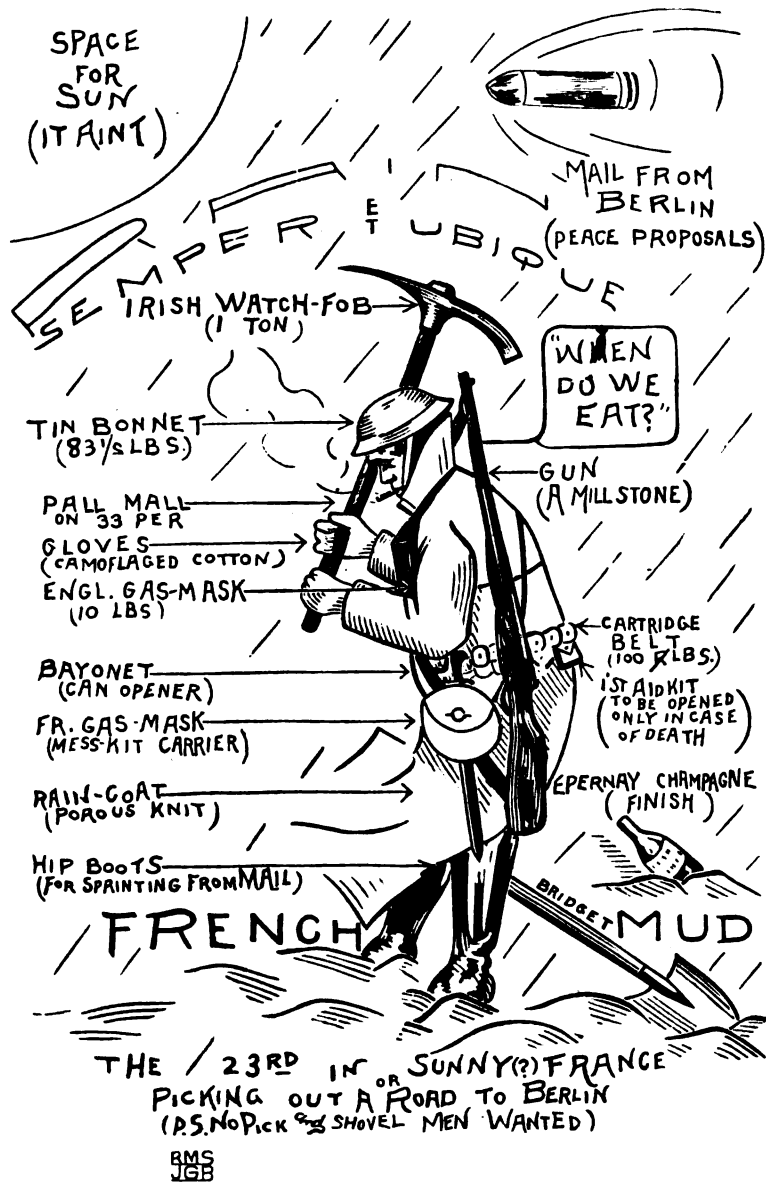 SPACE
FOR
SUN
(IT AINT)
MAIL FROM
BERLIN
(PEACE PROPOSALS)
SEMPER ET UBIQUE
IRISH WATCH-FOB
(1 TON)
"WHEN
DO WE
EAT?"
TIN BONNET
(83 1/2 LBS.)
GUN
(A MILLSTONE)
PALL MALL
ON 33 PER
GLOVES
(CAMOFLAGED COTTON)
ENGL. GAS-MASK
(10 LBS)
CARTRIDGE
BELT
(100 LBS.)
BAYONET
(CAN OPENER)
1ST AID KIT
(TO BE OPENED
ONLY IN CASE
OF DEATH)
FR. GAS-MASK
(MESS-KIT CARRIER)
EPERNAY CHAMPAGNE
(FINISH)
RAIN-COAT
(POROUS KNIT)
HIP BOOTS
(FOR SPRINTING FROM MAIL)
BRIDGET
FRENCH MUD
THE 23RD IN SUNNY(?) FRANCE
OR
PICKING OUT A ROAD TO BERLIN
(P.S. NO PICK and SHOVEL MEN WANTED)
RMS
JGB